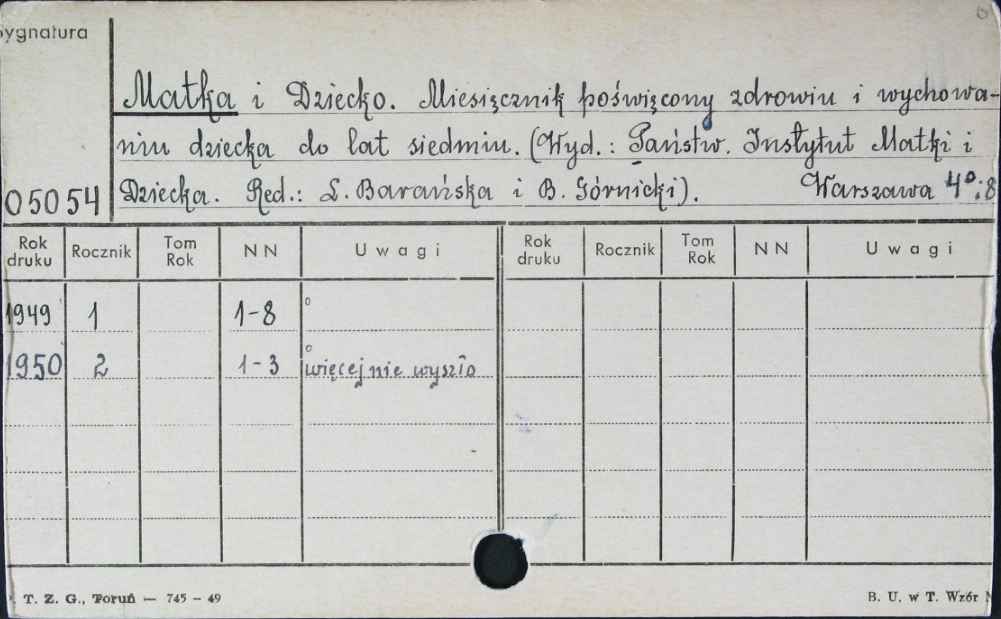 Sygnatura
Matka i Dziecko. Miesięcznik poświęcony zdrowiu i wychowa-
niu dziecka do lat siedmiu. (Wyd.: Państw. Instytut Matki i
05054 Dziecka. Red.: L. Barańska i B. Górnicki). Warszawa 4°:8
Rok druku Rocznik Tom Rok NN Uwagi Rok druku Rocznik Tom Rok NN Uwagi
1949 1 1-8 °
1950 2 1-3 ° więcej nie wyszło
T. Z. G., Toruń — 745 - 49 B. U. w T. Wzór